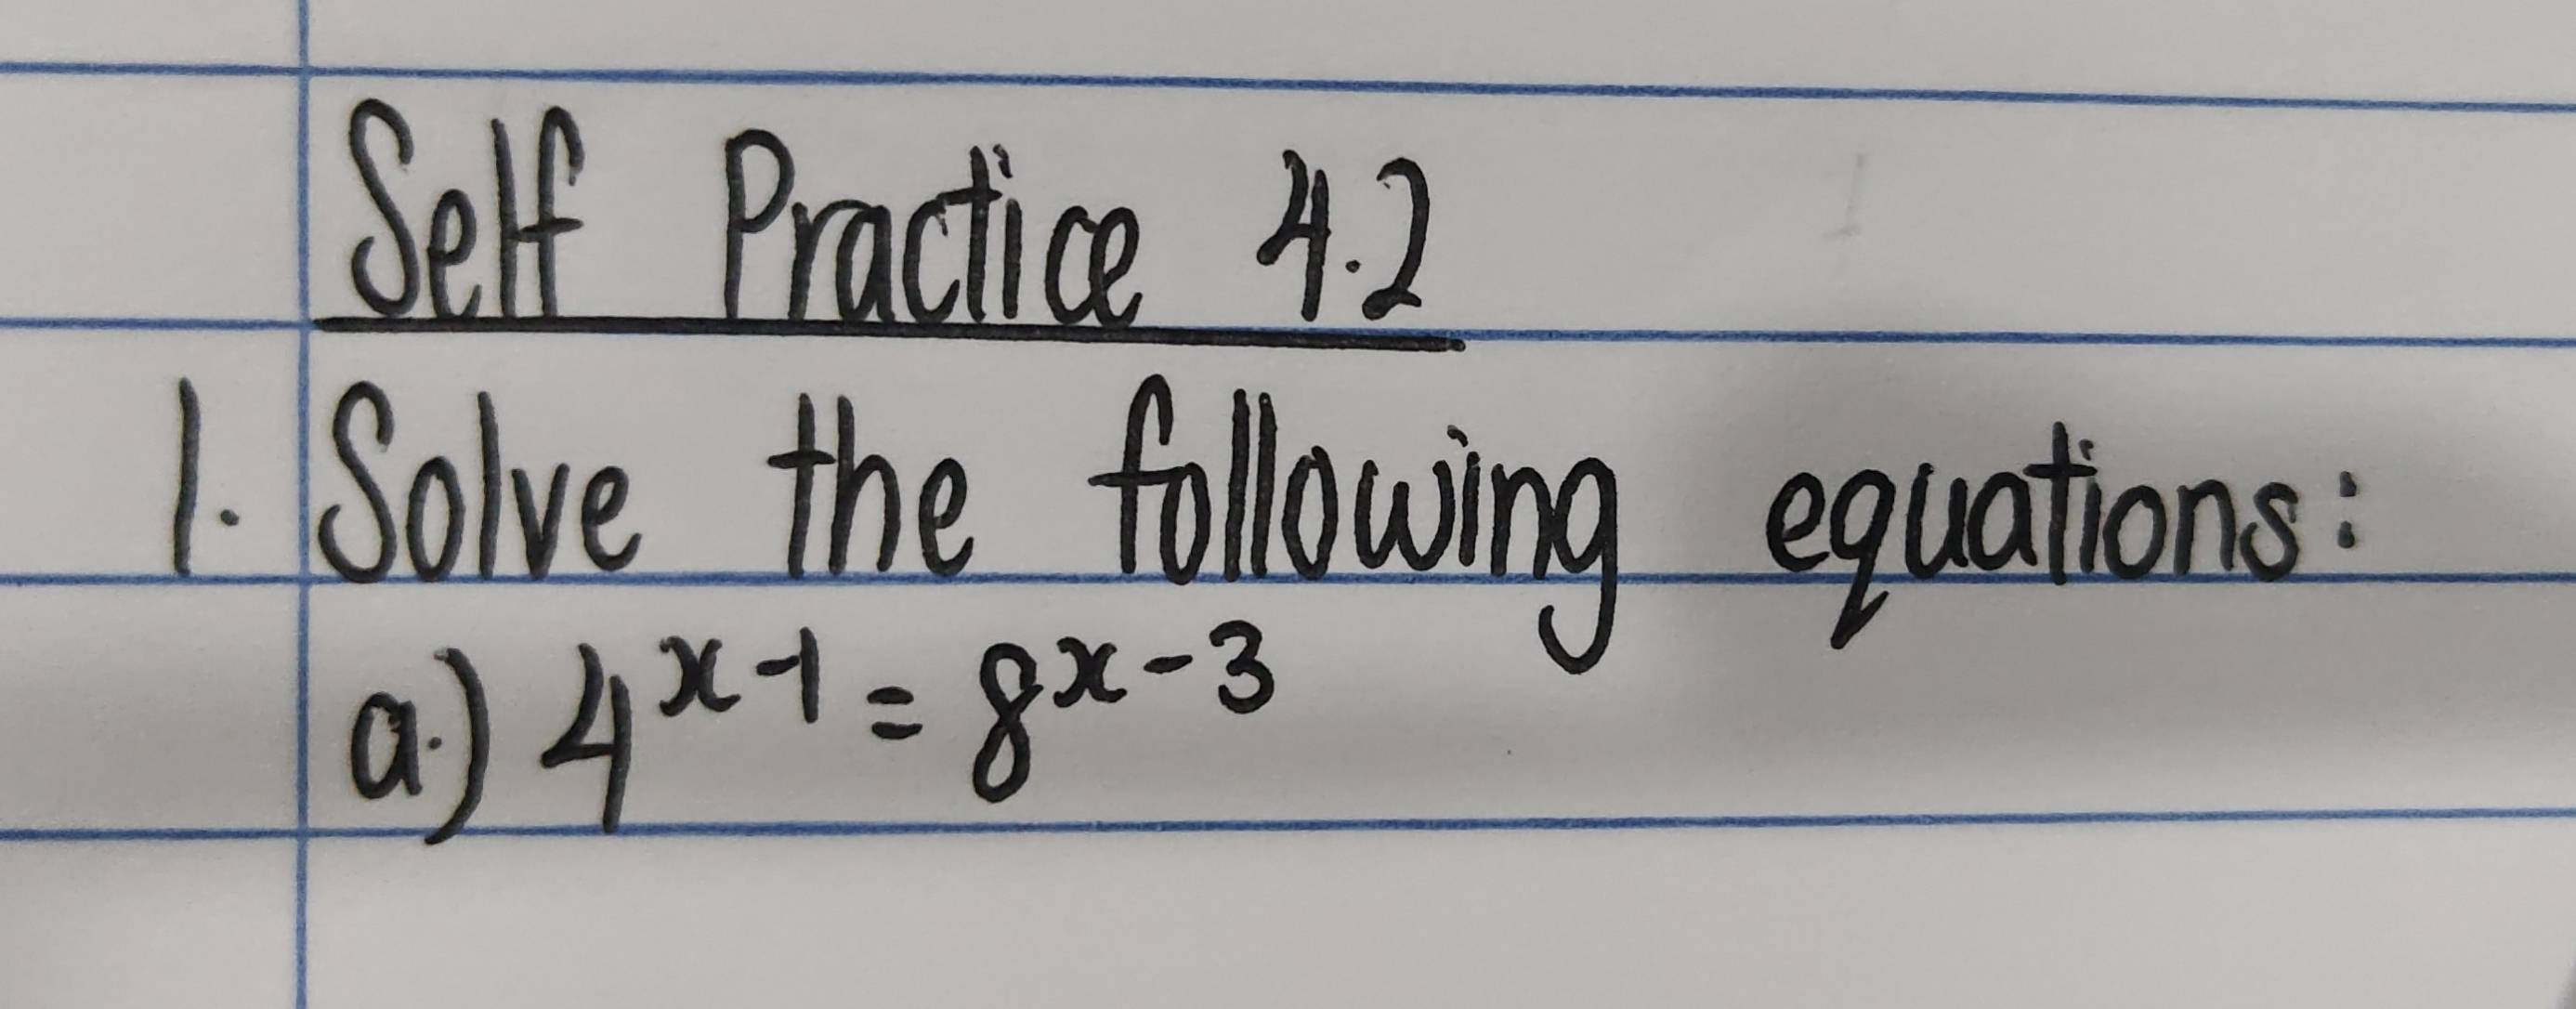 Self Practice 4.2
1. Solve the following equations:
a.) 4^x-1 = 8^x-3